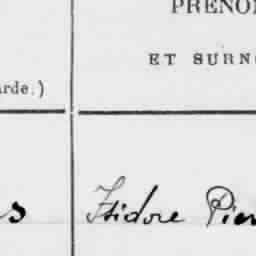 PRÉNO
ET SURN
arde.)
s Isidore Pier